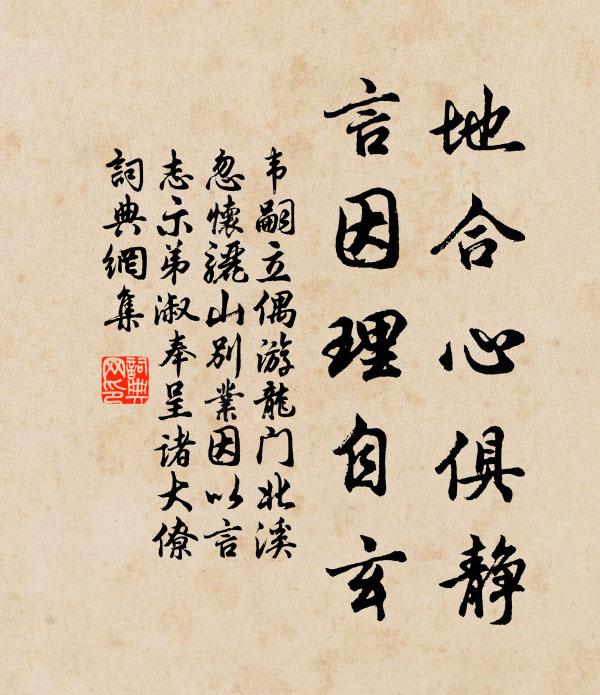 地合心俱静
言因理自玄
韦嗣立偶游龍门北溪
忽懷驪山别業因以言
志示弟淑奉呈诸大僚
詞典網集
詞典
网印